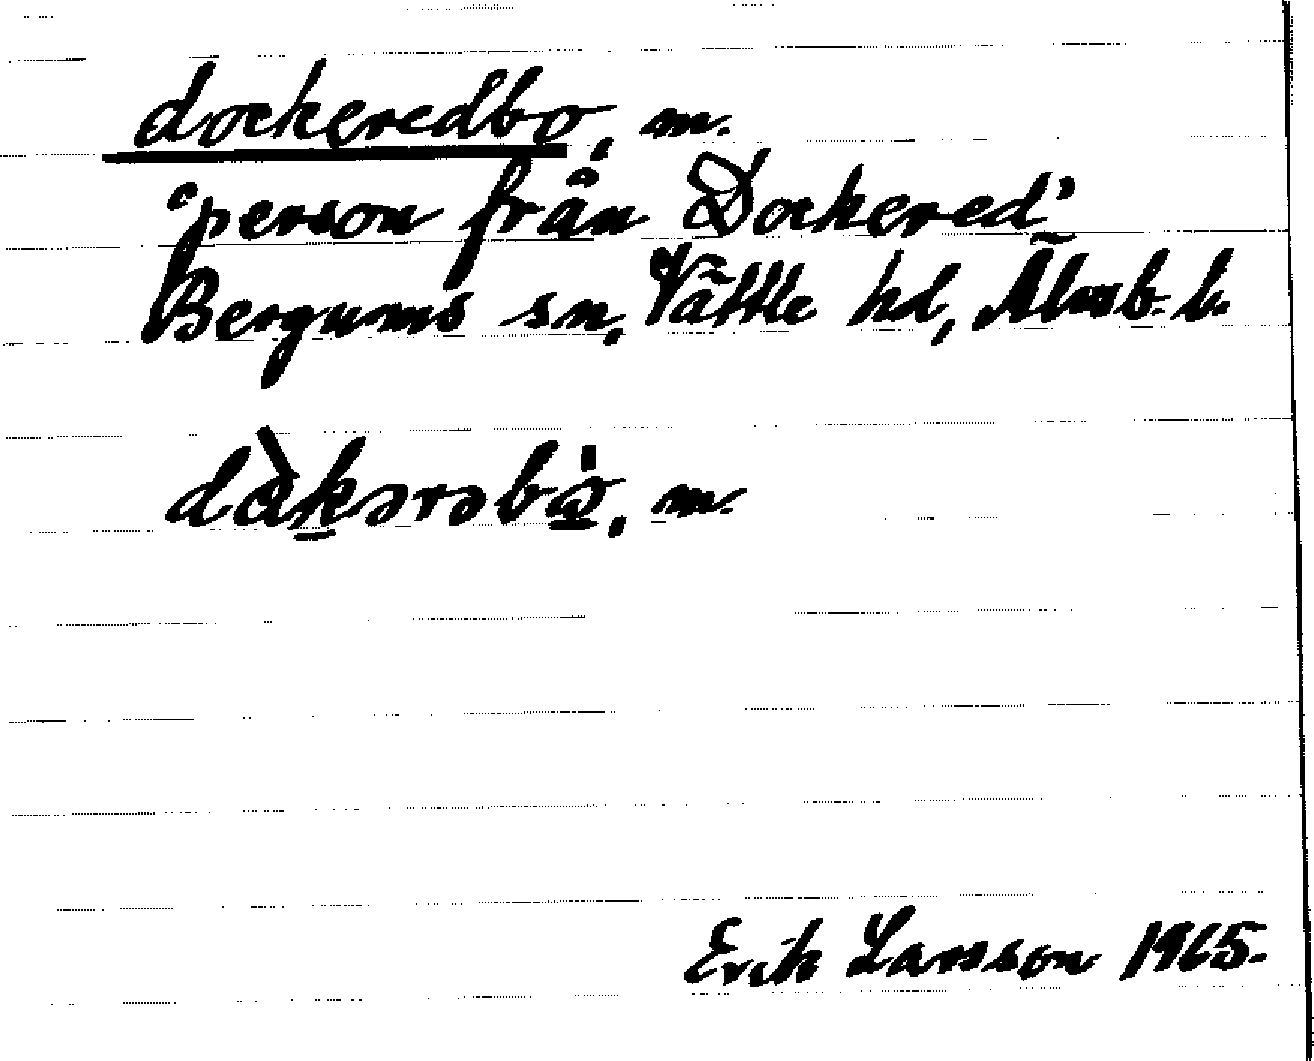 dockeredbo, m.
"person från Dockered"
Bergums sn, Vättle hd, Älvsb. l.
dàkərəbo, m.
Erik Larsson 1965.